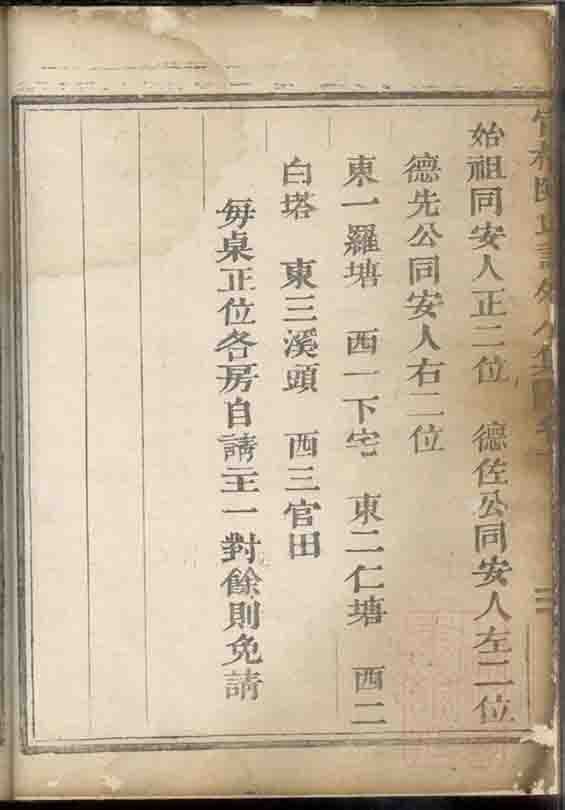 始祖同安人正二位 德佐公同安人左二位
德先公同安人右二位
東一羅塘 西一下宅 東二仁塘 西二
白塔 東三溪頭 西三官田
每桌正位各房自請主一對餘則免請